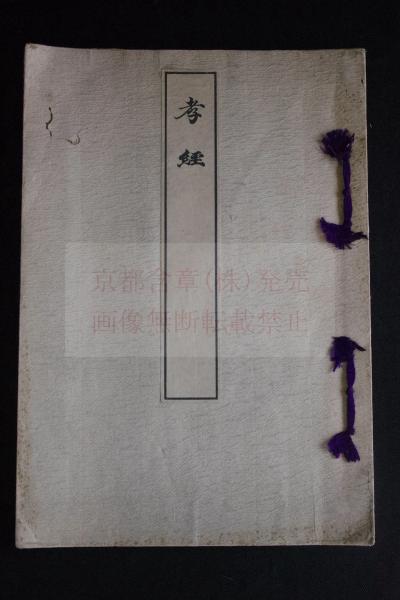 孝經
京都含章(株)発売
画像無断転載禁止